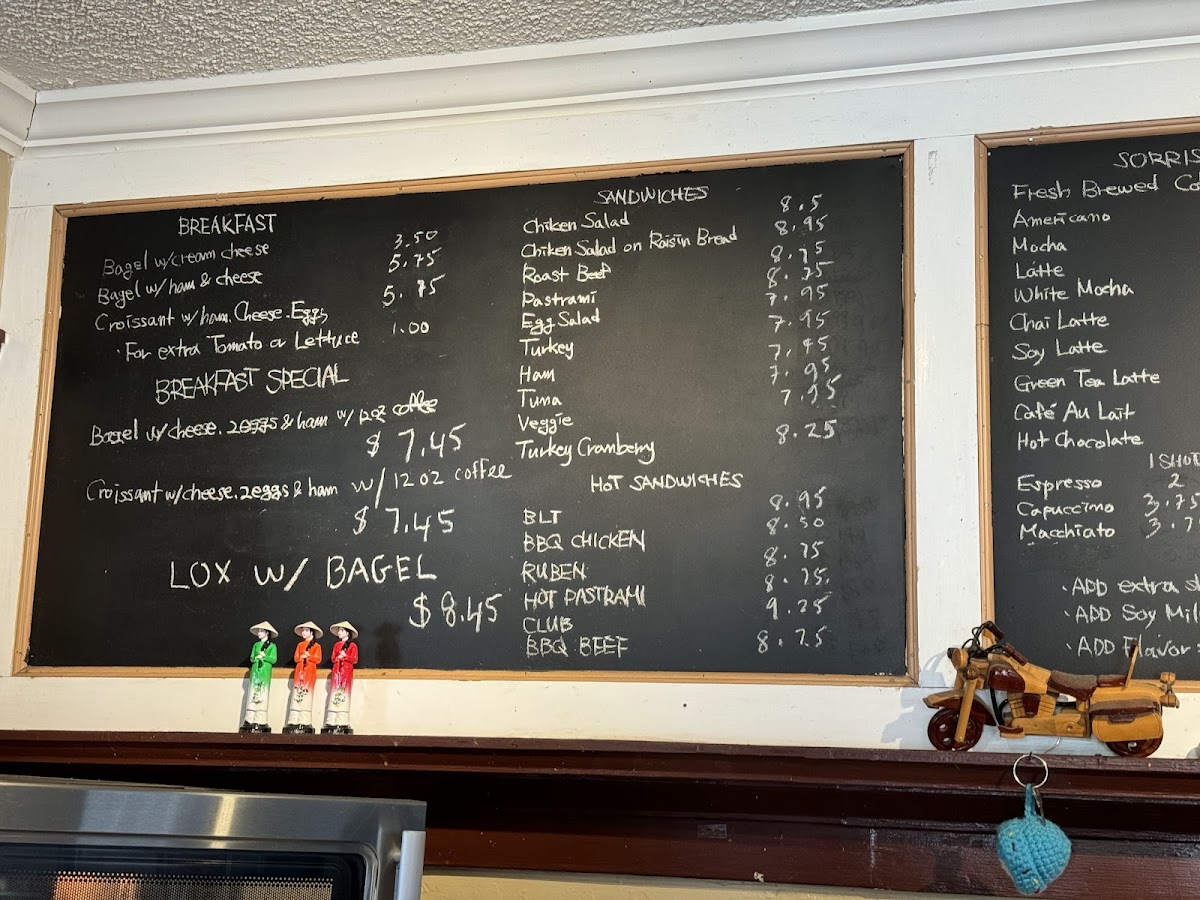 BREAKFAST
Bagel w/cream cheese 3.50
Bagel w/ ham & cheese 5.75
Croissant w/ham.Cheese.Eggs 5.75
·For extra Tomato or Lettuce 1.00
BREAKFAST SPECIAL
Bagel w/cheese.2eggs & ham w/ 12oz coffee
$ 7.45
Croissant w/cheese.2eggs & ham w/ 12 oz coffee
$ 7.45
LOX W/ BAGEL
$ 8.45
SANDWICHES
Chiken Salad 8.5
Chiken Salad on Raisin Bread 8.95
Roast Beef 8.75
Pastrami 8.75
Egg Salad 7.95
Turkey 7.95
Ham 7.95
Tuna 7.95
Veggie 7.95
Turkey Cranberry 8.25
HOT SANDWICHES
BLT 8.95
BBQ CHICKEN 8.50
RUBEN 8.75
HOT PASTRAMI 8.75
CLUB 9.25
BBQ BEEF 8.75
SORRIS
Fresh Brewed Co
Americano
Mocha
Látte
White Mocha
Chai Latte
Soy Latte
Green Tea Latte
Café Au Lait
Hot Chocolate
1 SHOT
Espresso 2
Capuccino 3.75
Macchiato 3.7
·ADD extra s
·ADD Soy Mil
·ADD Flavor